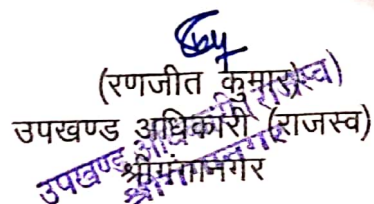 (रणजीत कुमार)
उपखण्ड अधिकारी (राजस्व)
श्रीगंगानगर
उपखण्ड अधिकारी (राजस्व)
श्रीगंगानगर